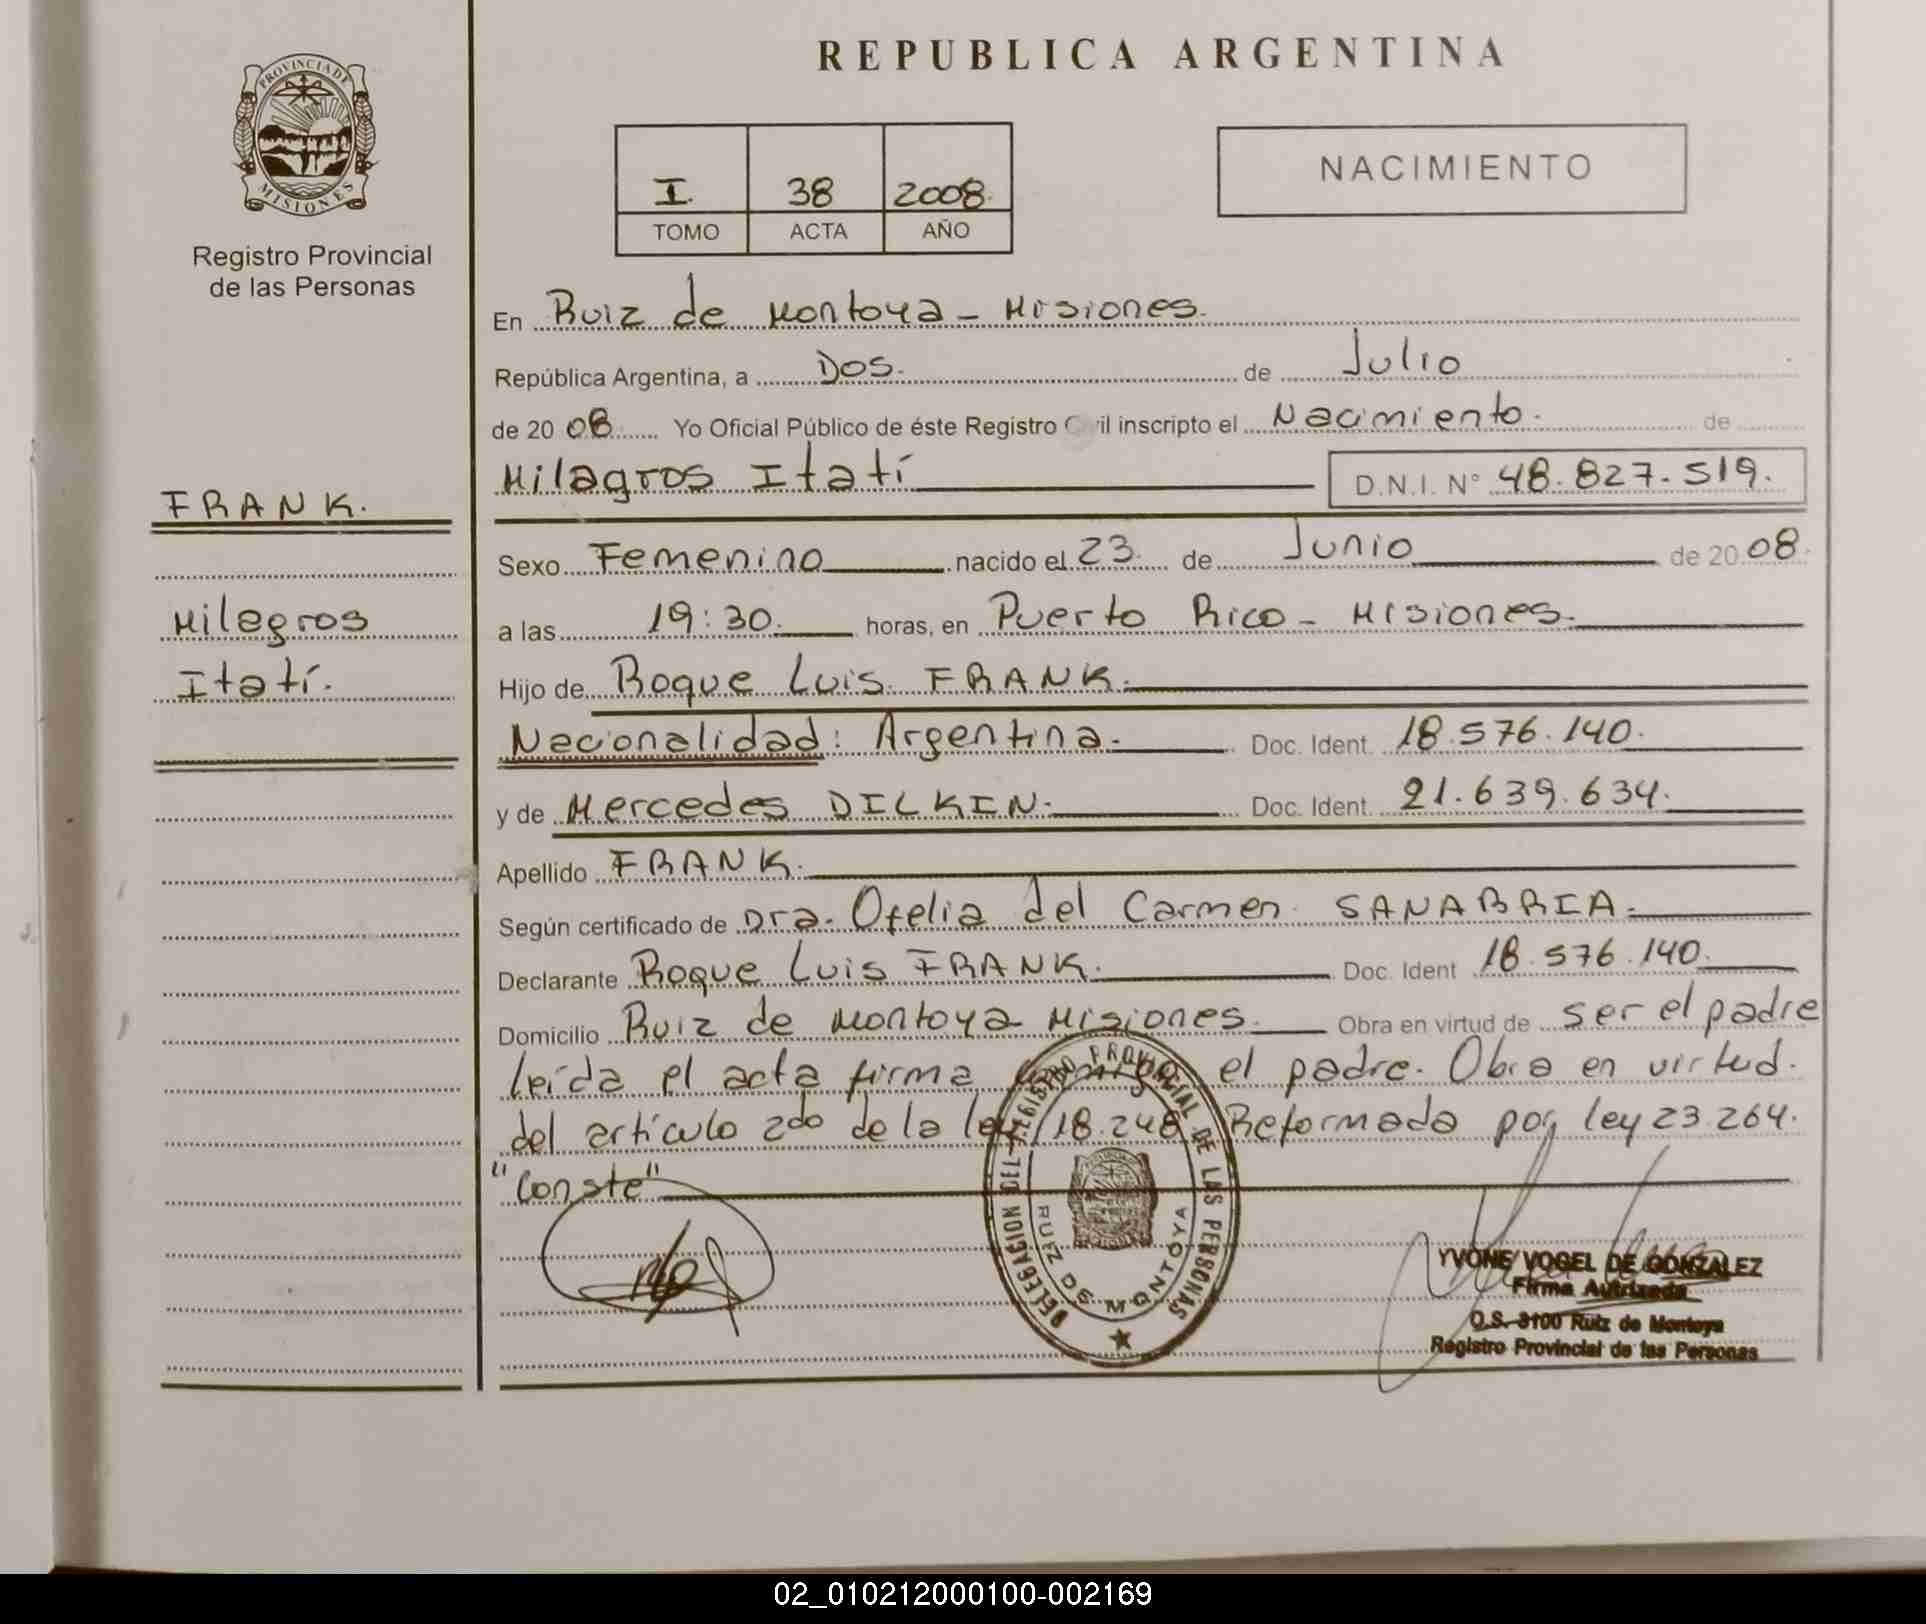 PROVINCIA DE
MISIONES
Registro Provincial
de las Personas
FRANK.
Milagros
Itatí.
REPUBLICA ARGENTINA
I. 38 2008.
TOMO ACTA AÑO
NACIMIENTO
En Ruiz de Montoya - Misiones.
República Argentina, a Dos. de Julio
de 2008 Yo Oficial Público de éste Registro Civil inscripto el Nacimiento. de
Milagros Itatí D.N.I. N° 48.827.519.
Sexo Femenino nacido el 23. de Junio de 2008.
a las 19:30. horas, en Puerto Rico - Misiones.
Hijo de Roque Luis FRANK.
Nacionalidad: Argentina. Doc. Ident. 18.576.140.
y de Mercedes DILKIN. Doc. Ident. 21.639.634.
Apellido FRANK.
Según certificado de Dra. Ofelia del Carmen SANABRIA.
Declarante Roque Luis FRANK. Doc. Ident 18.576.140.
Domicilio Ruiz de Montoya Misiones. Obra en virtud de ser el padre
leída el acta firma conmigo el padre. Obra en virtud.
del artículo 2do de la ley 18.248 Reformada por ley 23.264.
"Conste"
DELEGACION DEL REGISTRO PROVINCIAL DE LAS PERSONAS
RUIZ DE MONTOYA
YVONE VOGEL DE GONZALEZ
Firma Autrizada
O.S. 3100 Ruiz de Montoya
Registro Provincial de las Personas
02_010212000100-002169